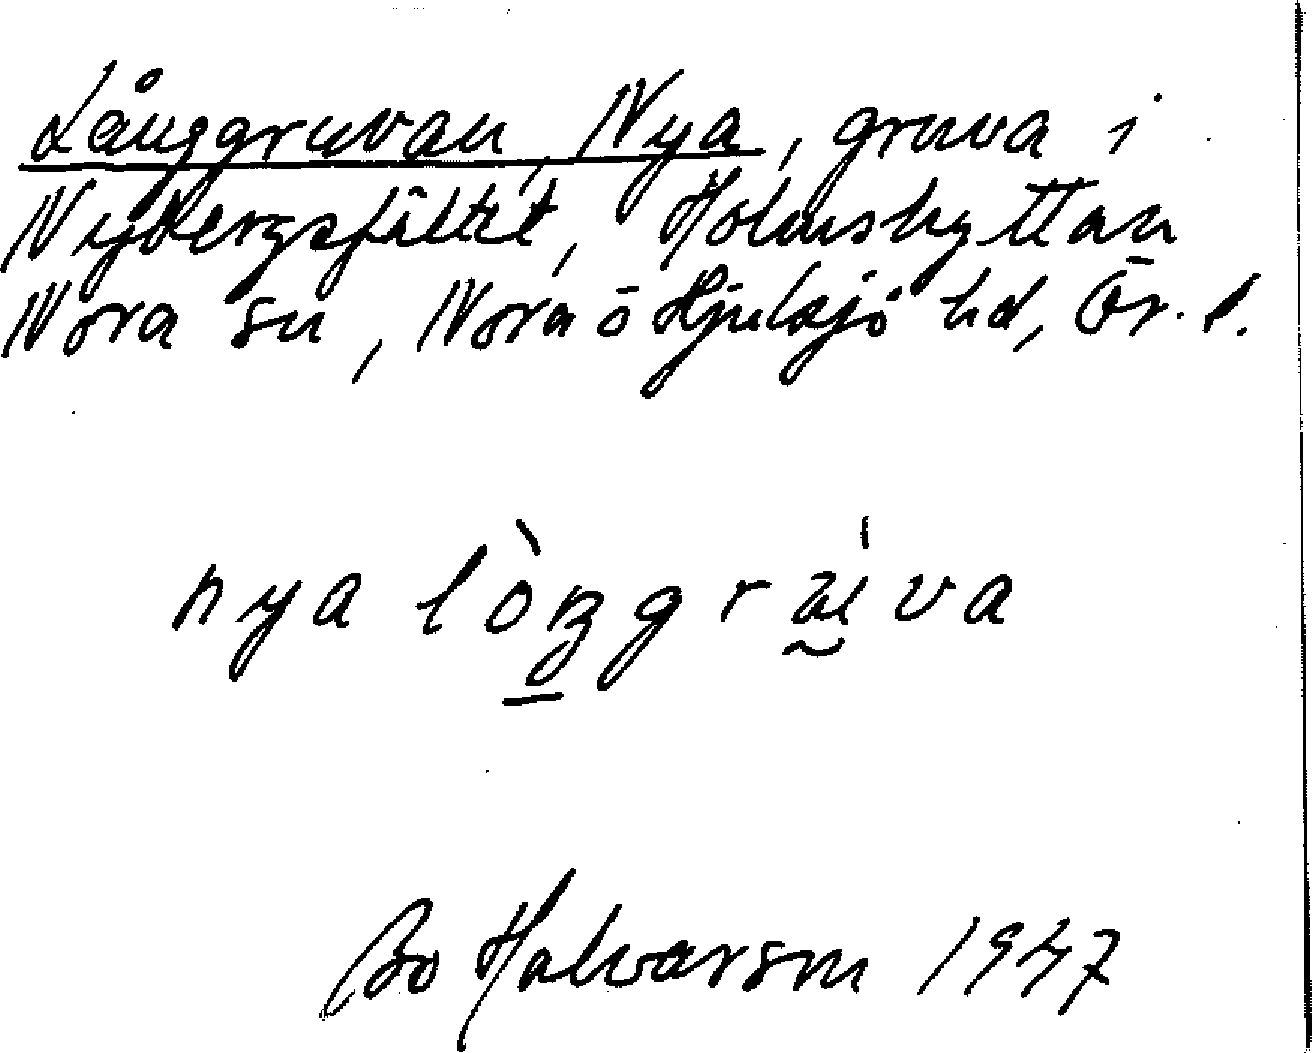 Långgruvan, Nya, gruva i
Nybergsfältet, Holmshyttan
Nora sn, Nora o Hjulsjö hd, Ör. l.
nya
Bo Halvarson 1947